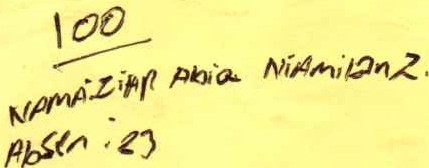 100
NAMA: ZiHAP Abia NiAmi12n Z.
AbSen : 23